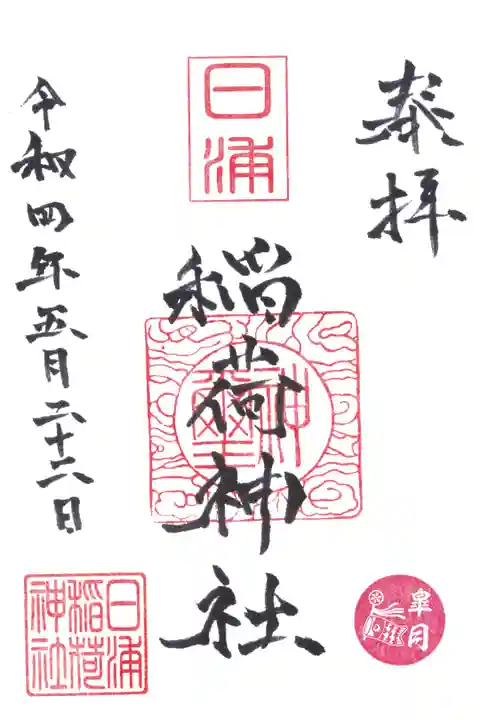 奉拝
日浦
稲荷神社
神璽
令和四年五月二十六日
皐月
日浦
稲荷
神社